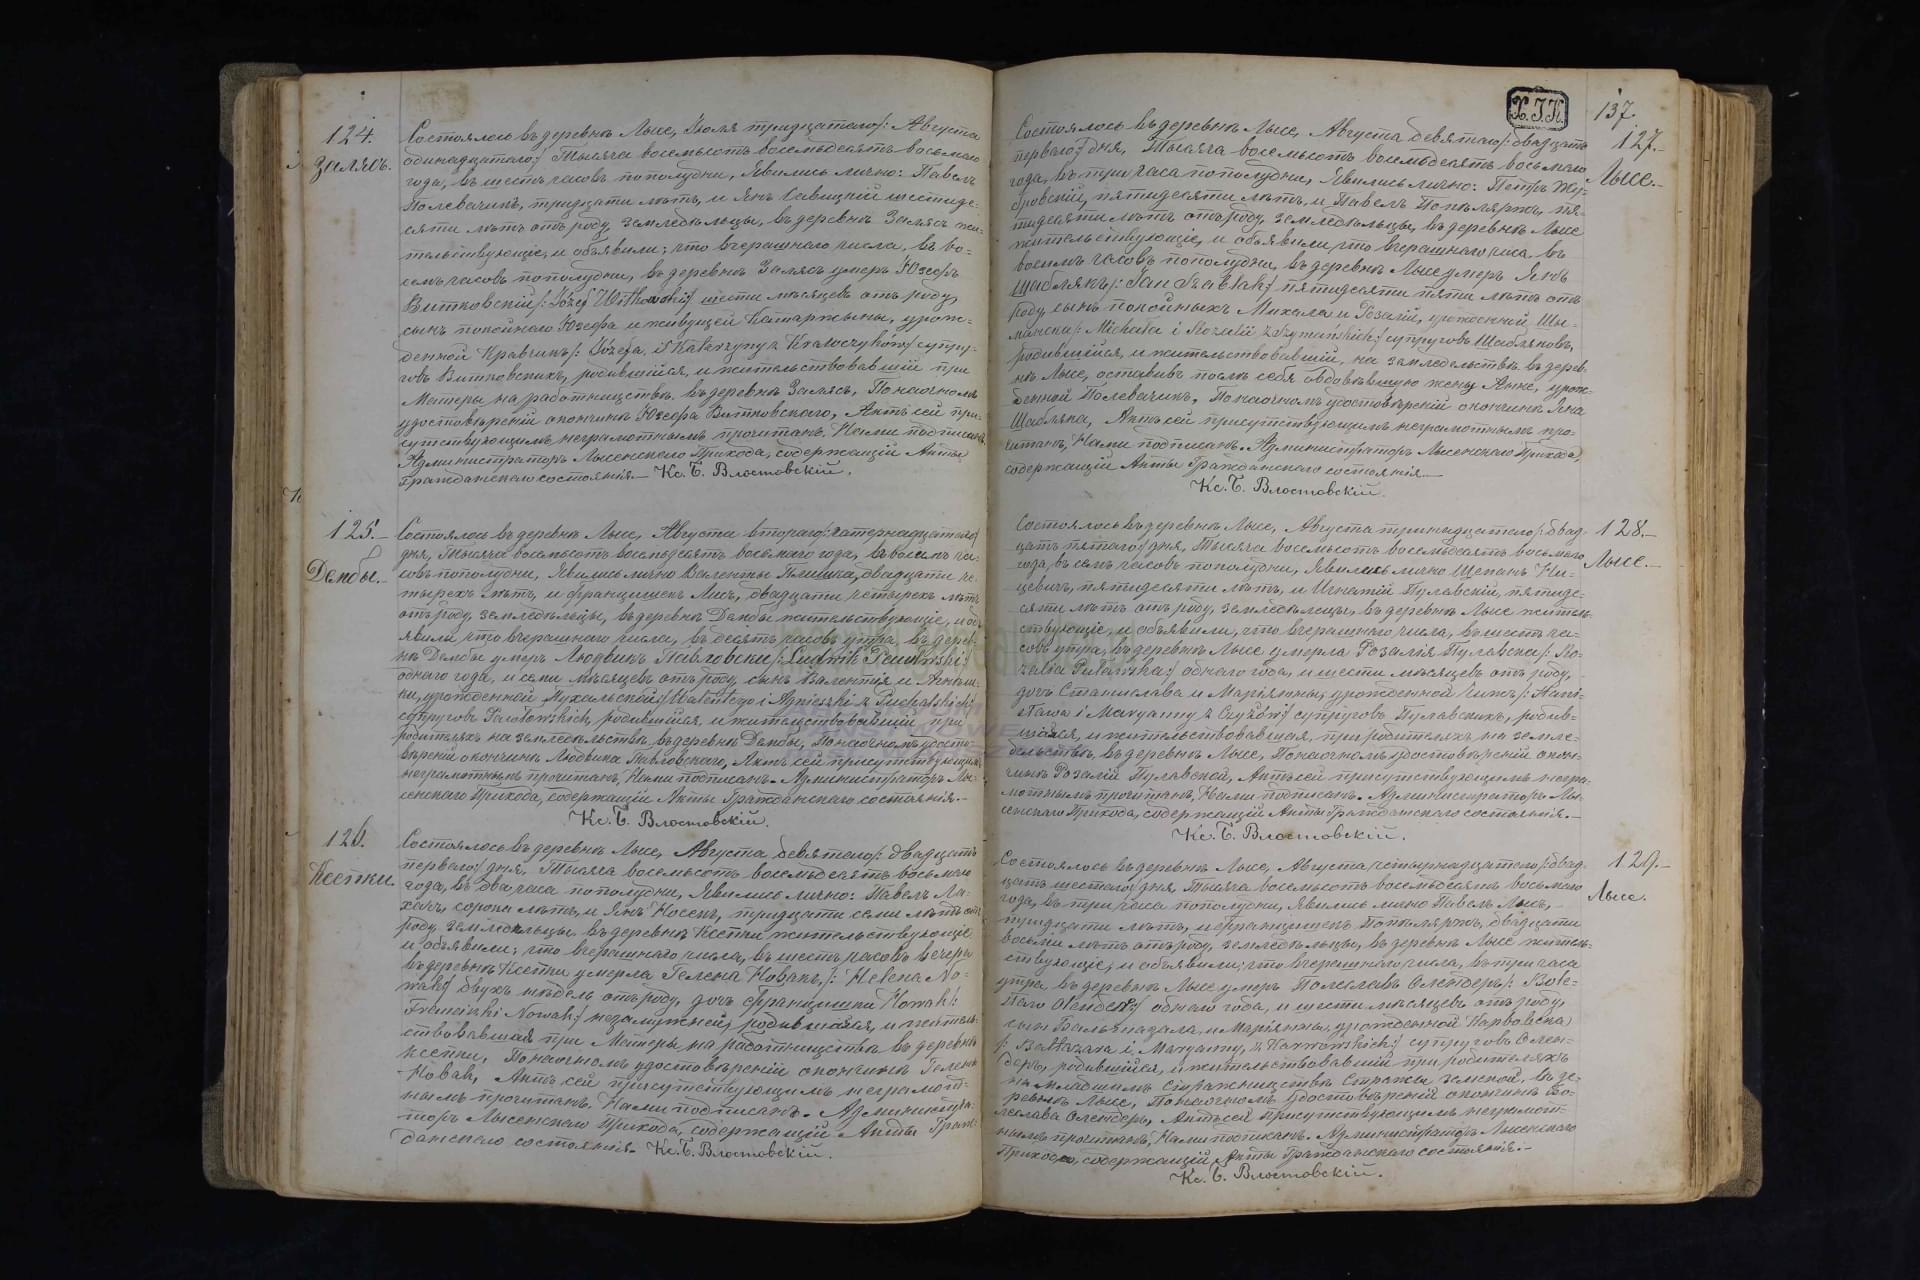 124.
Залясъ.
Состоялось въ деревнѣ Лысе, Іюля тридцатаго /: Августа
одинадцатаго :/ Тысяча восемьсотъ восемьдесятъ восьмаго
года, въ шесть часовъ пополудни, Явились лично: Павелъ
Полевачикъ, тридцати лѣтъ, и Янъ Савицкій шестиде-
сяти лѣтъ отъ роду, земледѣльцы, въ деревнѣ Залясъ жи-
тельствующіе, и объявили; что вчерашнаго числа, въ во-
семь часовъ пополудни, въ деревнѣ Залясъ умеръ Юзефъ
Витковскій /: Józef Witkowski :/ шести мѣсяцевъ отъ роду,
сынъ покойнаго Юзефа и живущей Катаржины, урож-
денной Кравчикъ /: Józefa, i Katarzyny z Krawczyków :/ супру-
говъ Витковскихъ, родившійся, и жительствовавшій при
Матеры на работництвѣ въ деревнѣ Залясъ, По наочномъ
удостовѣреніи о кончинѣ Юзефа Витковскаго, Актъ сей при-
сутствующимъ неграмотнымъ прочитанъ, Нами подписанъ.
Администраторъ Лысенскаго Прихода, содержащій Акты
Гражданскаго состоянія. — Кс. Б. Влостовскій.
125.
Дембы.
Состоялось въ деревнѣ Лысе, Августа втораго /: четернадцатаго :/
дня, Тысяча восемьсотъ восемьдесятъ восьмаго года, въ восемь ча-
совъ пополудни, Явились лично Валенты Плишка, двадцати че-
тырехъ лѣтъ, и Францишекъ Лисъ, двадцати четырехъ лѣтъ
отъ роду, земледѣльцы, въ деревнѣ Дембы жительствующіе, и объ-
явили что вчерашнаго числа, въ десять часовъ утра, въ дерев-
нѣ Дембы умеръ Людвикъ Павловски /: Ludwik Pawłowski :/
однаго года, и семи мѣсяцевъ отъ роду, сынъ Валентія и Агнѣш-
ки, урожденной Пухальской /: Walentego i Agnieszki z Puchalskich :/
супруговъ Pawłowskich, родившійся, и жительствовавшій при
родителяхъ на земледѣльствѣ въ деревнѣ Дембы, По наочномъ удосто-
вѣреніи о кончинѣ Людвика Павловскаго, Актъ сей присутствующимъ
неграмотнымъ прочитанъ, Нами подписанъ. Администраторъ Лы-
сенскаго Прихода, содержащій Акты Гражданскаго состоянія. —
Кс. Б. Влостовскій.
126.
Кѐпки.
Состоялось въ деревнѣ Лысе, Августа девятаго /: двадцать
перваго :/ дня, Тысяча восемьсотъ восемьдесятъ восьмаго
года, въ два часа пополудни, Явились лично: Павелъ Ла-
хачъ, сорока лѣтъ, и Янъ Носекъ, тридцати семи лѣтъ отъ
роду, земледѣльцы, въ деревнѣ жительствующіе
и объявили; что вчерашнаго числа, въ шесть часовъ вечера
въ деревнѣ умерла Гелена Новакъ, /: Helena No-
wak :/ двухъ недѣль отъ роду, дочь Францишки Nowak /:
Franciszki Nowak :/ незамужней, родившаяся, и житель-
ствовавшая при Матеры на работництвѣ въ деревнѣ
По наочномъ удостовѣреніи о кончинѣ Гелены
Новак, Актъ сей присутствующимъ неграмот-
нымъ прочитанъ, Нами подписанъ. Администра-
торъ Лысенскаго Прихода, содержащій Акты Граж-
данскаго состоянія. Кс. Б. Влостовскій.
Х.І.К.
137.
127.
Лысе.
Состоялось въ деревнѣ Лысе, Августа девятаго /: двадцать
перваго :/ дня, Тысяча восемьсотъ восемьдесятъ восьмаго
года, въ три часа пополудни, Явились лично: Петръ
пятидесяти лѣтъ, и Павелъ Попѣляржъ, пя-
тидесяти лѣтъ отъ роду, земледѣльцы, въ деревнѣ Лысе
жительствующіе, и объявили что вчерашнаго числа, въ
восемь часовъ пополудни, въ деревнѣ Лысе умеръ Янъ
Щаблякъ /: Jan Szablak :/ пятидесяти пяти лѣтъ отъ
роду, сынъ покойныхъ Михала и Розаліи, урожденной Шы-
мански /: Michała i Rozalii z Szymańskich :/ супруговъ Щабляковъ,
родившійся, и жительствовавшій, на земледѣльствѣ въ дерев-
нѣ Лысе, оставивъ послѣ себя овдовѣвшую жену Анне, урож-
денной Полевачикъ, По наочномъ удостовѣреніи о кончинѣ Яна
Щабляка, Актъ сей присутствующимъ неграмотнымъ про-
читанъ, Нами подписанъ. Администраторъ Лысенскаго Прихода,
содержащій Акты Гражданскаго состоянія. —
Кс. Б. Влостовскій.
128.
Лысе.
Состоялось въ деревнѣ Лысе, Августа тринадцатаго /: двад-
цать пятаго :/ дня, Тысяча восемьсотъ восемьдесятъ восьмаго
года, въ семь часовъ пополудни, Явились лично Щепанъ Ни-
цевичъ, пятидесяти лѣтъ, и Игнатій Пулавскій, пятиде-
сяти лѣтъ отъ роду, земледѣльцы, въ деревнѣ Лысе житель-
ствующіе, и объявили, что вчерашнаго числа, въ шесть ча-
совъ утра, въ деревнѣ Лысе умерла Розалія Пулавска /: Ro-
zalia Puławska :/ однаго года, и шести мѣсяцевъ отъ роду,
дочь Станислава и Маріянны, урожденной Чижъ /: Stani-
sława i Maryanny z Czyżów :/ супруговъ Пулавскихъ, родив-
шаяся, и жительствовавшая, при родителяхъ на земле-
дѣльствѣ, въ деревнѣ Лысе, По наочномъ удостовѣреніи о кон-
чинѣ Розаліи Пулавской, Актъ сей присутствующимъ негра-
мотнымъ прочитанъ, Нами подписанъ. Администраторъ Лы-
сенскаго Прихода, содержащій Акты Гражданскаго состоянія. —
Кс. Б. Влостовскій.
129.
Лысе.
Состоялось въ деревнѣ Лысе, Августа четырнадцатаго /: двад-
цать шестаго :/ дня, Тысяча восемьсотъ восемьдесятъ восьмаго
года, въ три часа пополудни, Явились лично Павелъ Лисъ,
тридцати лѣтъ, и Францишекъ Попѣляржъ, двадцати
восьми лѣтъ отъ роду, земледѣльцы, въ деревнѣ Лысе житель-
ствующіе, и объявили; что вчерашнаго числа, въ три часа
утра въ деревнѣ Лысе умеръ Болеславъ Олендеръ /: Bole-
sław Olender :/ однаго года, и шести мѣсяцевъ отъ роду,
сынъ Бальтазара, и Маріянны, урожденной Карвовска
/: Baltazara i Maryanny, z Karwowskich :/ супруговъ Олен-
деръ, родившійся, и жительствовавшій при родителяхъ
на младшимъ стражництвѣ Стражы земской, въ де-
ревнѣ Лысе, По наочномъ удостовѣреніи о кончинѣ Бо-
леслава Олендеръ, Актъ сей присутствующимъ неграмот-
нымъ прочитанъ, Нами подписанъ. Администраторъ Лысенскаго
Прихода, содержащій Акты Гражданскаго состоянія. —
Кс. Б. Влостовскій.